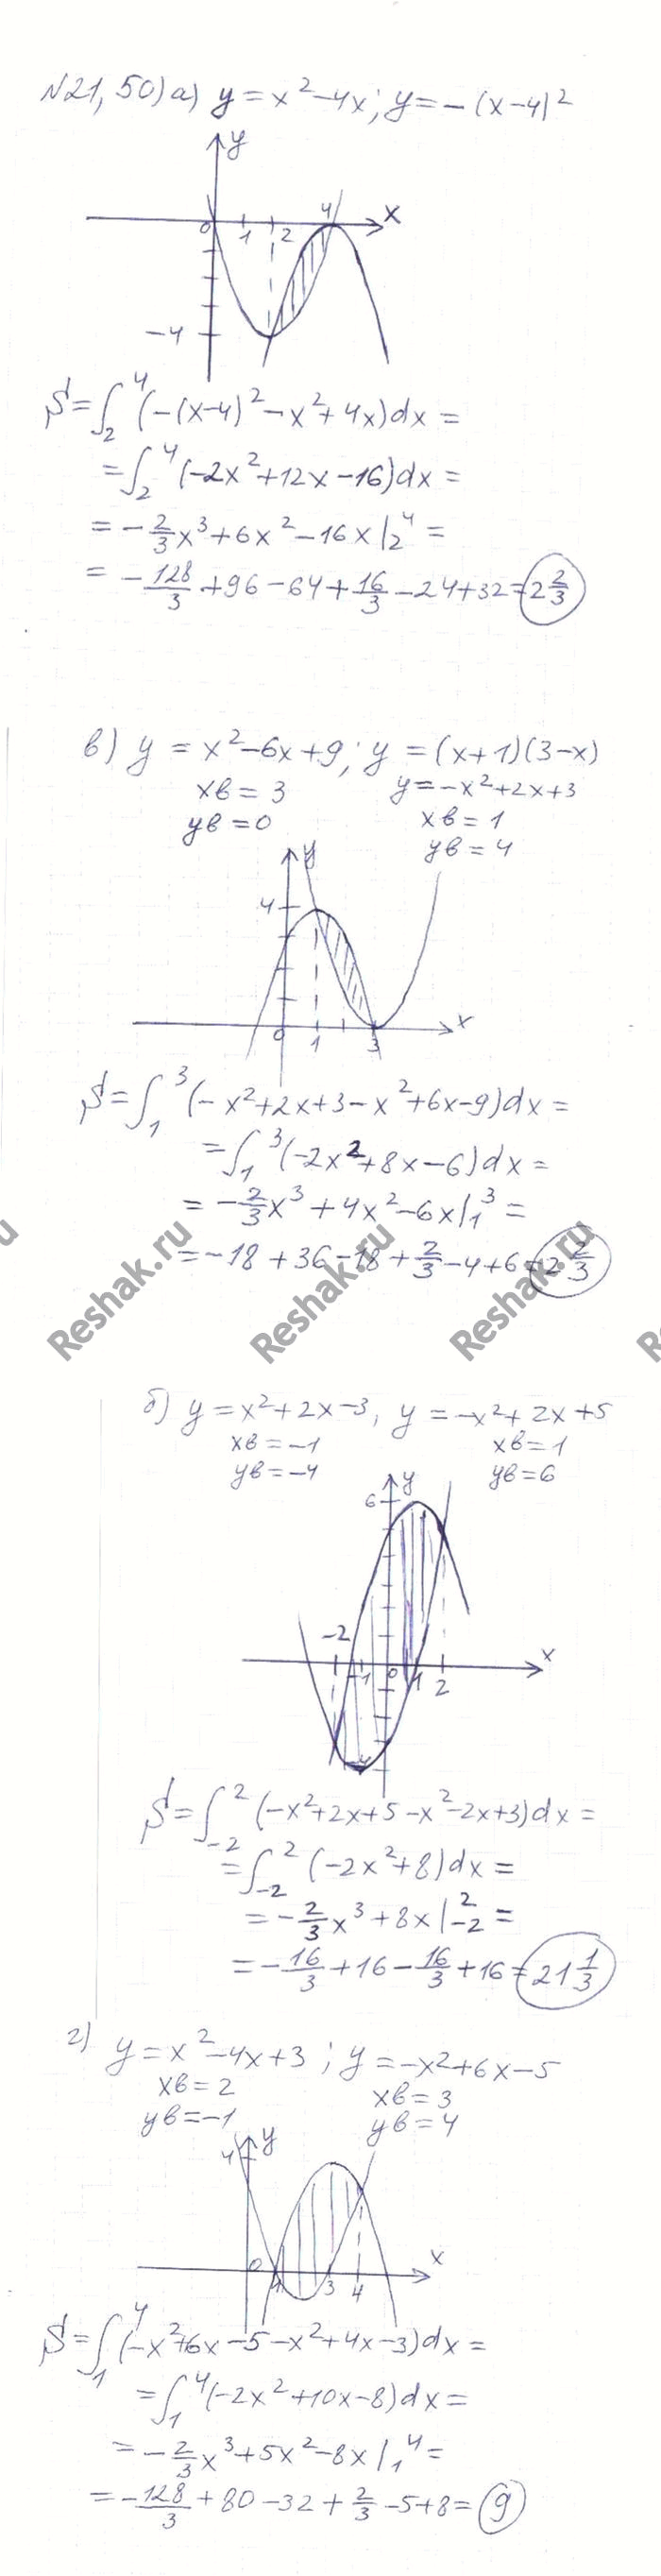 №21,50) а) y = x² - 4x; y = -(x-4)²
y
4
x
0
1
2
-4
S = ∫₂⁴ (-(x-4)² - x² + 4x)dx =
= ∫₂⁴ (-2x² + 12x - 16)dx =
= -2/3 x³ + 6x² - 16x |₂⁴ =
= -128/3 + 96 - 64 + 16/3 - 24 + 32 = 2 2/3
в) y = x² - 6x + 9; y = (x+1)(3-x)
xв = 3
y = -x² + 2x + 3
yв = 0
xв = 1
yв = 4
y
4
x
0
1
3
S = ∫₁³ (-x² + 2x + 3 - x² + 6x - 9)dx =
= ∫₁³ (-2x² + 8x - 6)dx =
= -2/3 x³ + 4x² - 6x |₁³ =
= -18 + 36 - 18 + 2/3 - 4 + 6 = 2 2/3
Reshak.ru Reshak.ru Reshak.ru
б) y = x² + 2x - 3, y = -x² + 2x + 5
xв = -1
xв = 1
yв = -4
yв = 6
6
y
-2
x
-1
0
1
2
-4
S = ∫₋₂² (-x² + 2x + 5 - x² - 2x + 3)dx =
= ∫₋₂² (-2x² + 8)dx =
= -2/3 x³ + 8x |₋₂² =
= -16/3 + 16 - 16/3 + 16 = 21 1/3
г) y = x² - 4x + 3; y = -x² + 6x - 5
xв = 2
xв = 3
yв = -1
yв = 4
4
y
x
0
1
3
4
S = ∫₁⁴ (-x² + 6x - 5 - x² + 4x - 3)dx =
= ∫₁⁴ (-2x² + 10x - 8)dx =
= -2/3 x³ + 5x² - 8x |₁⁴ =
= -128/3 + 80 - 32 + 2/3 - 5 + 8 = 9